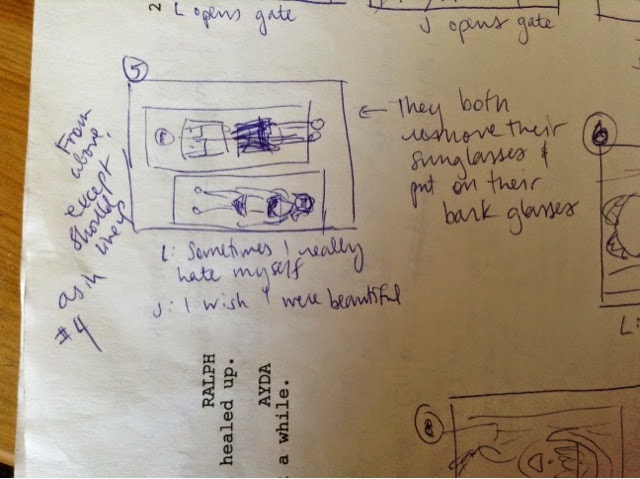 2
L opens gate
J opens gate
5
From
above,
except
should
as in
#4
← They both
remove their
sunglasses &
put on their
bark glasses
L: Sometimes I really
hate myself
J: I wish I were beautiful
6
L:
8
RALPH
healed up.
AYDA
a while.